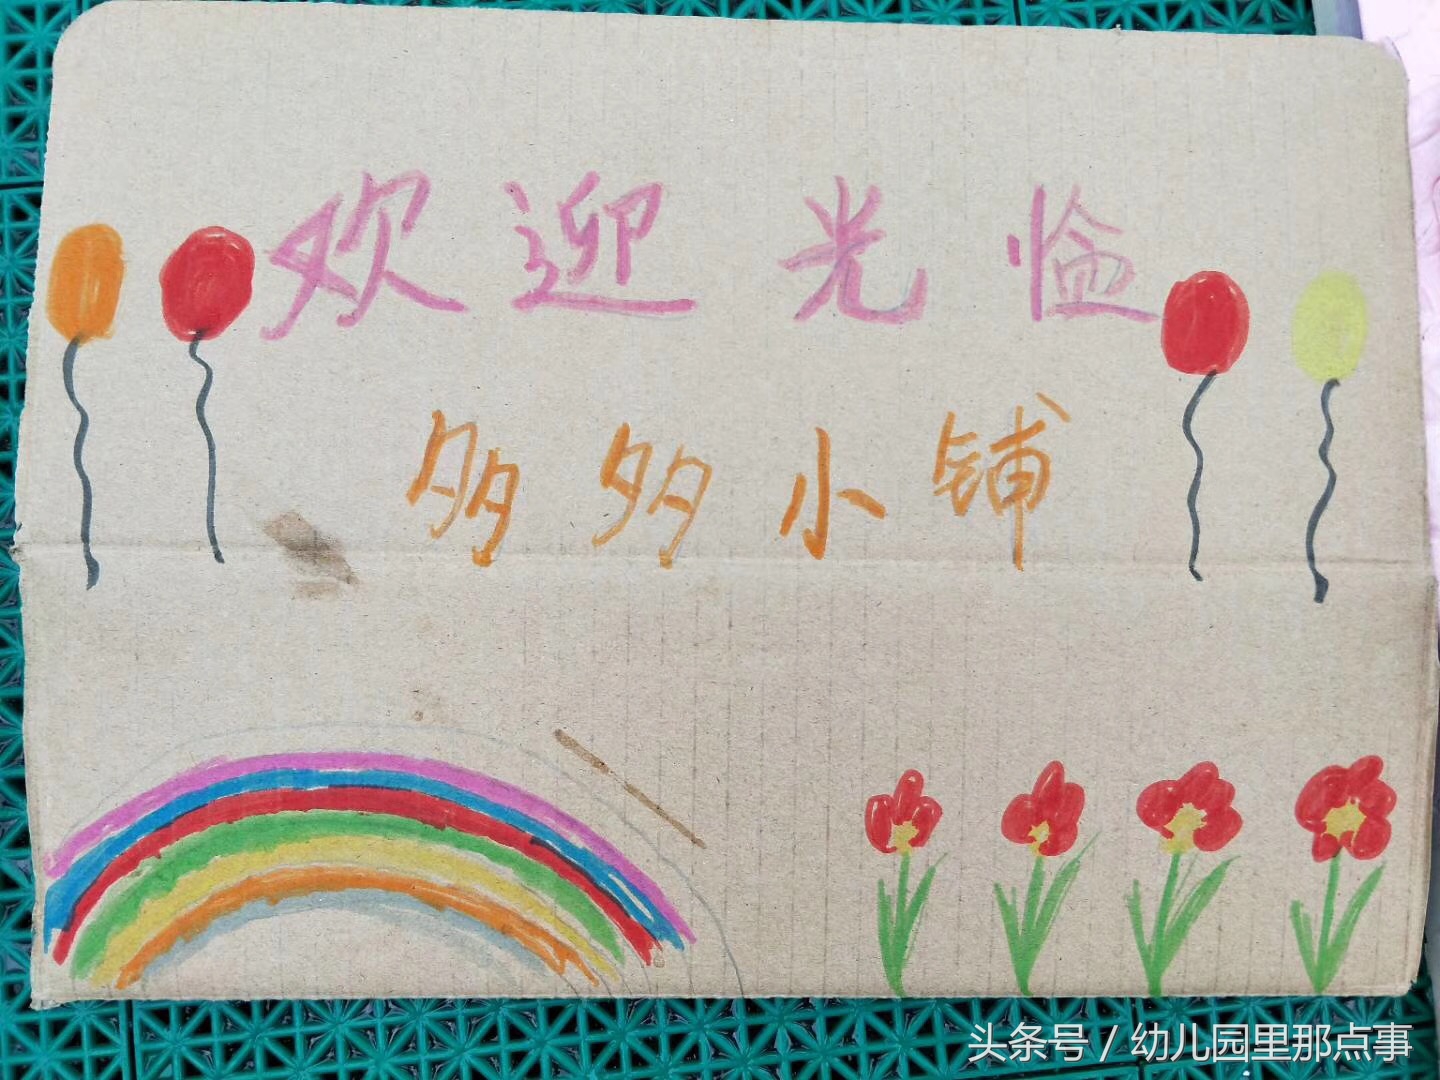 欢迎光临
多多小铺
头条号 / 幼儿园里那点事